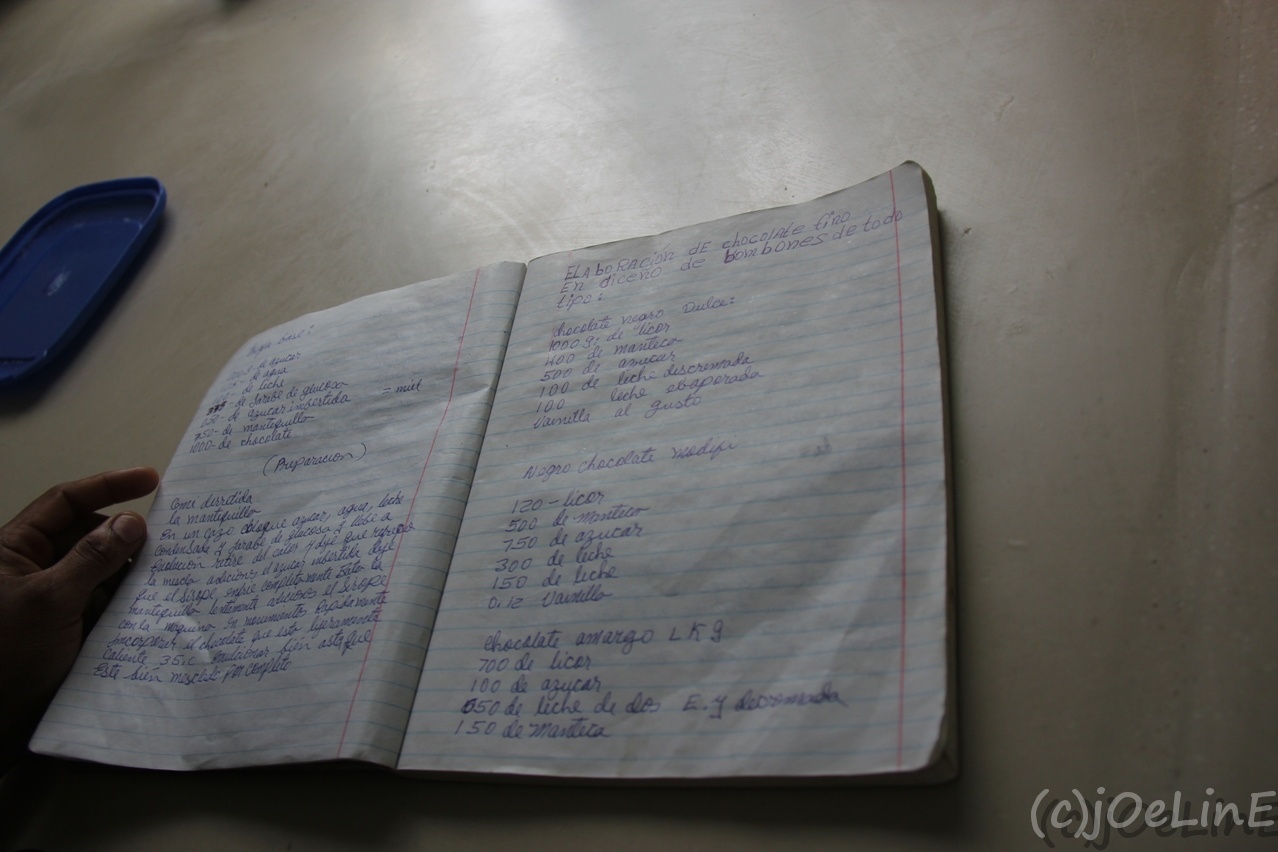 de azucar
de agua
de leche
de Jarabe de glucosa
de azucar imbertida = miel
de mantequilla
1000- de chocolate
(Preparacion)
derretida
la mantequilla
En un cazo coloque azucar, agua, leche
Condensada y jarabe de glucosa y llebe a
Evulucion retire del calor y deje que
la mescla adicione el azucar imbertida deje
que el sirope, enfrie completamente Batir la
mantequilla lentamente adicione el sirope
con la maquina en movimientos Rapidamente
Incorporar el chocolate que esta ligeramente
Caliente 35.c bien asta que
Este bien mesclado por completo
ELAboRAción dE chocolAte fino
En diceño de bombones de todo
tipo:
chocolate negro Dulce:
1000 gr de licor
400 de manteca
500 de azucar
100 de leche descremada
100 leche ebaporada
Vainilla al gusto
Negro chocolate modifi
120 - licor
500 de manteca
750 de azucar
300 de leche
150 de leche
0.12 Vainilla
Chocolate amargo 1 K g
700 de licor
100 de azucar
050 de leche de dos E. y descremada
150 de Manteca
(c)jOeLinE